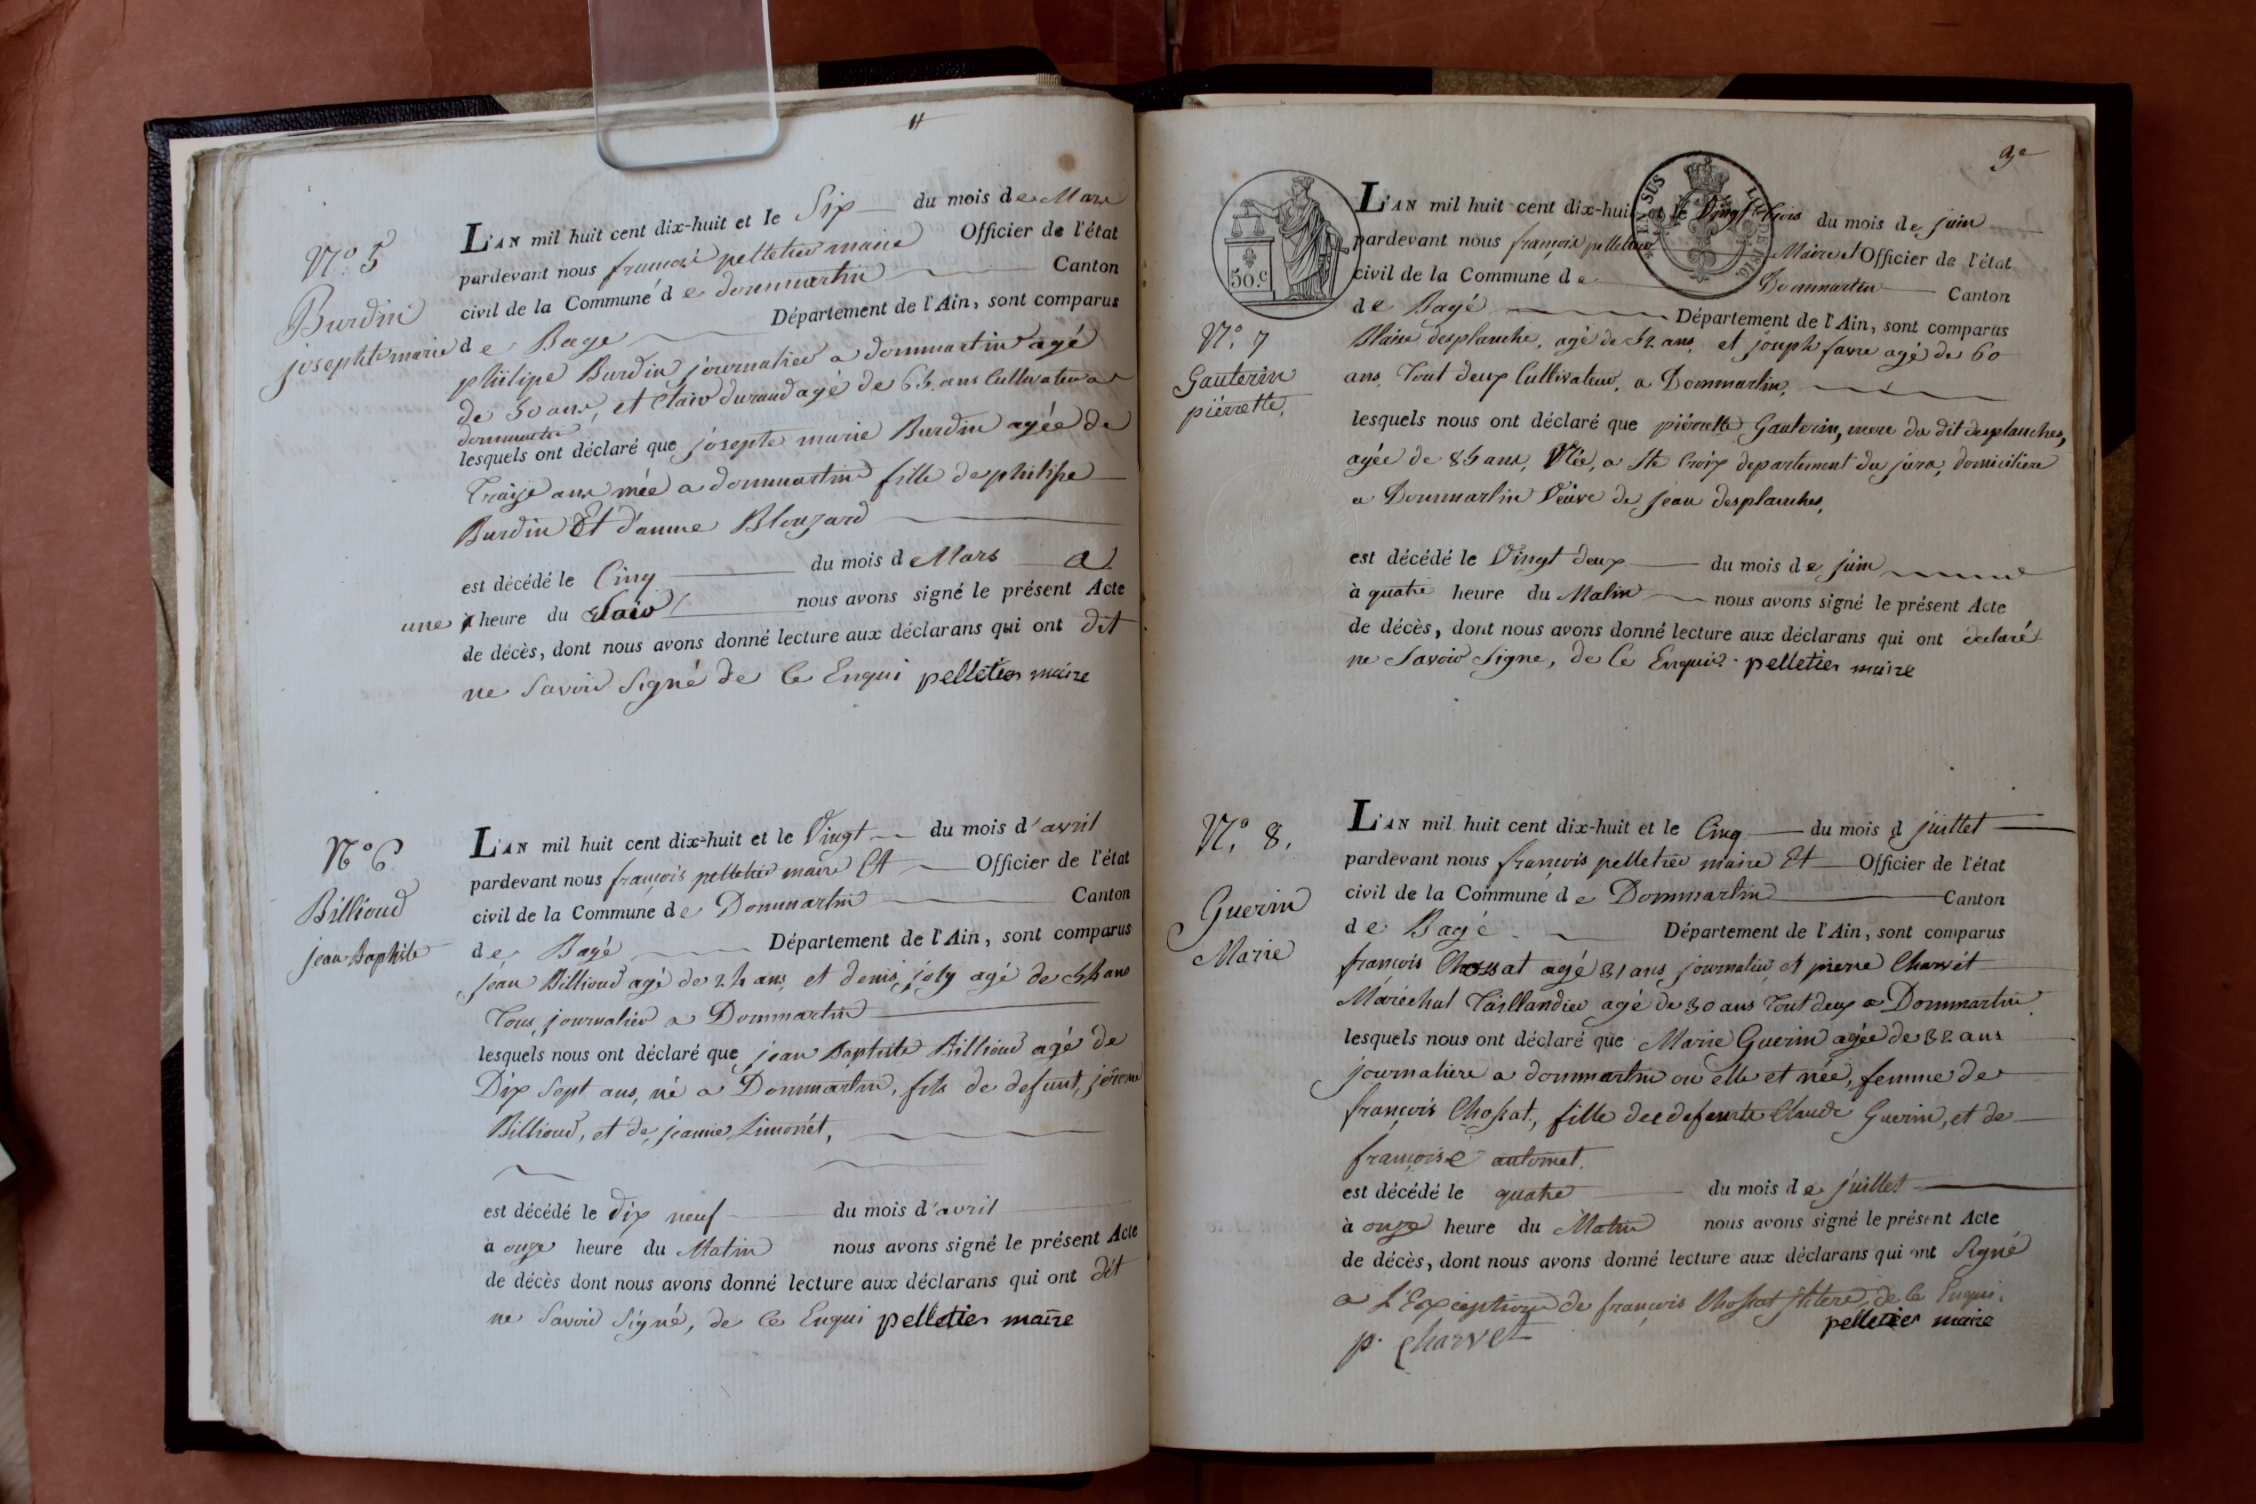 N.o 5
Burdin
josephte marie
L'AN mil huit cent dix-huit et le Six du mois de Mars
pardevant nous françois pelletier maire Officier de l'état
civil de la Commune de dommartin Canton
de Bage Département de l'Ain, sont comparus
philipe Burdin journalier a dommartin agé
de 50 ans, et Claio durand agé de 65 ans Cultivateur a
dommartin
lesquels ont déclaré que josepte marie Burdin agée de
Traize ans née a dommartin fille de philipe
Burdin Et d'anne Blouzard
est décédé le Cinq du mois de Mars a
une heure du Soir nous avons signé le présent Acte
de décès, dont nous avons donné lecture aux déclarans qui ont dit
ne Savoir Signé de Ce Enqui pelletier maire
N.o 6
Billioud
jean Baptiste
L'AN mil huit cent dix-huit et le Vingt du mois d'avril
pardevant nous françois pelletier maire Et Officier de l'état
civil de la Commune de Dommartin Canton
de Bagé Département de l'Ain, sont comparus
jean Billioud agé de 24 ans, et denis joly agé de 54 ans
Tous journalier a Dommartin
lesquels nous ont déclaré que jean Baptiste Billioud agé de
Dix Sept ans, né a Dommartin, fils de defunt, jérome
Billioud, et de jeanne Limonét,
est décédé le dix neuf du mois d'avril
à onze heure du Matin nous avons signé le présent Acte
de décès dont nous avons donné lecture aux déclarans qui ont dit
ne Savoir Signé, de Ce Enqui pelletier maire
9e
50.c
N.o 7
Gauterin
piérrette,
L'AN mil huit cent dix-huit et le Vingt trois du mois de juin
pardevant nous françois pelletier Maire et Officier de l'état
civil de la Commune de Dommartin Canton
de Bagé Département de l'Ain, sont comparus
Blaise desplanche, agé de 52 ans, et joseph favre agé de 60
ans, Tout deux Cultivateur, a Dommartin,
lesquels nous ont déclaré que piérrette Gauterin, mere du dit desplanches,
agée de 85 ans, Née, a Ste Croix departement du jura, domiciliere
a Dommartin Veuve de jean desplanches,
est décédé le Vingt deux du mois de juin
à quatre heure du Matin nous avons signé le présent Acte
de décès, dont nous avons donné lecture aux déclarans qui ont declaré
ne Savoir Signe, de Ce Enquis. pelletier maire
N.o 8.
Guerin
Marie
L'AN mil huit cent dix-huit et le Cinq du mois d juillet
pardevant nous françois pelletier maire Et Officier de l'état
civil de la Commune de Dommartin Canton
de Bagé Département de l'Ain, sont comparus
françois Chossat agé 31 ans journalier et pierre Charvét
Maréchal Taillandier agé de 30 ans Tout deux a Dommartin
lesquels nous ont déclaré que Marie Guerin agée de 32 ans
journaliere a dommartin ou elle et née, femme de
françois Chossat, fille de defunte Claude Guerin, et de
françoise automet.
est décédé le quatre du mois de juillet
à onze heure du Matin nous avons signé le présent Acte
de décès, dont nous avons donné lecture aux déclarans qui ont Signé
a L'Exception de françois Chossat de Ce Enqui.
pelletier maire
p. Charvet